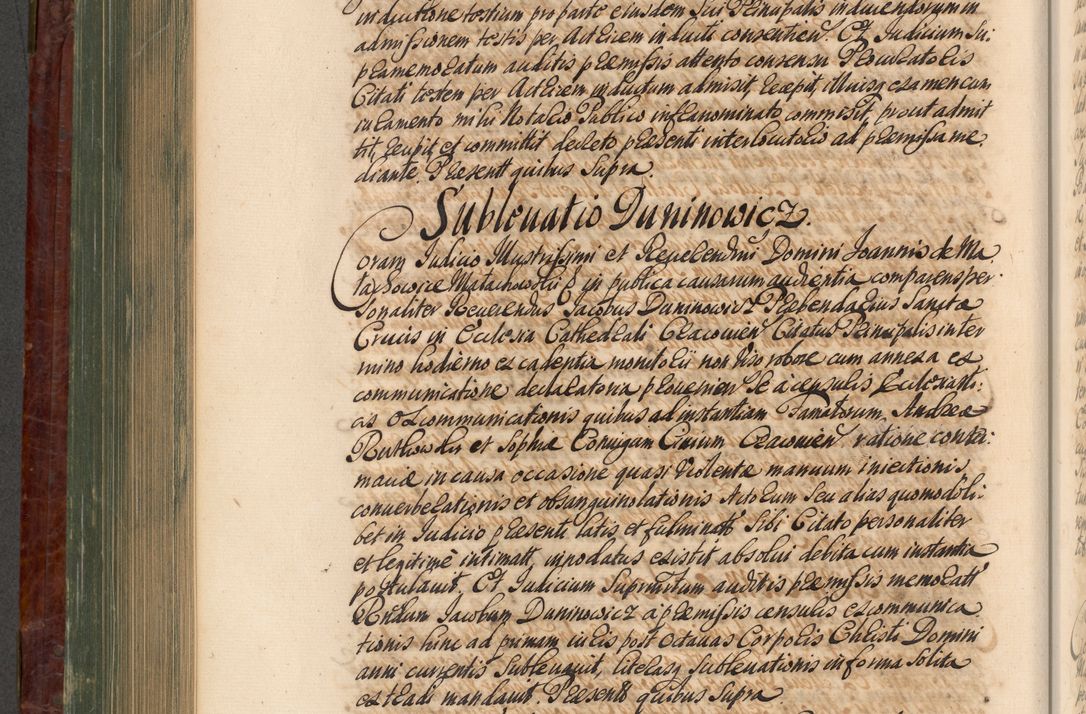 inductione testium pro parte eiusdem sui Principalis inducendorum in
admissionem testis per Actorem inducti consentien. Et Judicium su,,
pramemoratum auditis præmissis attento consensu Procuratoris
Citati testem per Actorem inductum admisit, recepit, illiusq examen cum
iuramento mihi Notario Publico infranominato commisit, prout admit
tit, recipit et committit decreto præsenti interlocutorio ad præmissa me,,
diante. Præsentt quibus supra.
Subleuatio Duninowicz.
Coram Judicio Illustrissimi et Reverendmi Domini Joannis de Ma,,
łachowice Małachowski & in publica causarum audientia comparens per,,
sonaliter Reuerendus Jacobus Duninowicz Præbendarius Sanctæ
Crucis in Ecclesia Cathedrali Cracouien Citatus Principalis in ter,,
mino hodierno ex cadentia monitorii non viso robore cum annexa ex
communicatione declaratoria prouenien Se a censuris Ecclesiasti,,
cis excommunicationis quibus ad instantiam Famatorum Andreæ
Rutkowski et Sophiæ Coniugam Civium Cracouien ratione contu,,
maciæ in causa occasione quasi violentæ manuum iniectionis,
conuerberationis et obsanguinolationis Actorum seu alias quomodoli,,
bet in Judicio præsenti latis, et fulminatt sibi Citato personaliter
et legitime intimatt, innodatus existit absolui debita cum instantia
postulauit. Et Judicium supratum auditis præmissis memoratt
Rndum Jacobum Duninowicz a præmissis censuris excommunica
tionis hinc ad primam iuris post octauas Corporis Christi Domini
anni currentis subleuauit, literasq subleuationis in forma solita
extradi mandauit. Præsentt quibus supra